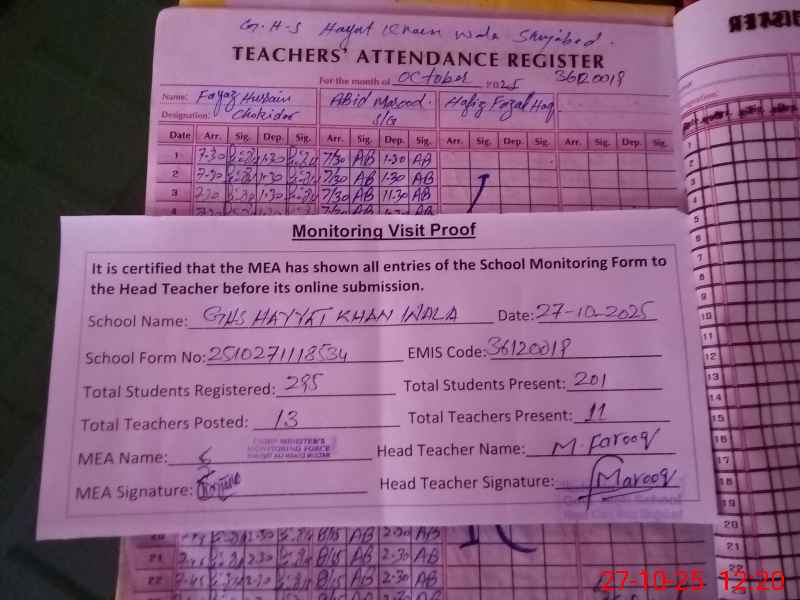 G.H.S Hayat Khan Wala Shujabad.
TEACHERS' ATTENDANCE REGISTER
For the month of October 2025 36120019
Name: Fayaz Hussain Abid Masood. Hafiz Fazal Haq
Designation: Chokidar S/G
Date Arr. Sig. Dep. Sig. Arr. Sig. Dep. Sig. Arr. Sig. Dep. Sig. Arr. Sig. Dep. Sig.
1 7-30 1-30 7/30 AB 1-30 AB
2 7-30 1-30 7/30 AB 1-30 AB
3 7-30 1-30 7/30 AB 11-30 AB
4
Monitoring Visit Proof
It is certified that the MEA has shown all entries of the School Monitoring Form to
the Head Teacher before its online submission.
School Name: GHS HAYYAT KHAN WALA Date: 27-10-2025
School Form No: 2510271118534 EMIS Code: 36120019
Total Students Registered: 295 Total Students Present: 201
Total Teachers Posted: 13 Total Teachers Present: 11
MEA Name: CHIEF MINISTER'S MONITORING FORCE Head Teacher Name: M. Farooq
MEA Signature: Head Teacher Signature: Marooq
21 7-45 2-30 8/15 AB 2-30 AB
22 7-45 2-30 8/15 AB 2-30 AB
9
10
11
12
13
14
15
16
17
18
19
20
21
22
27-10-25 12:20